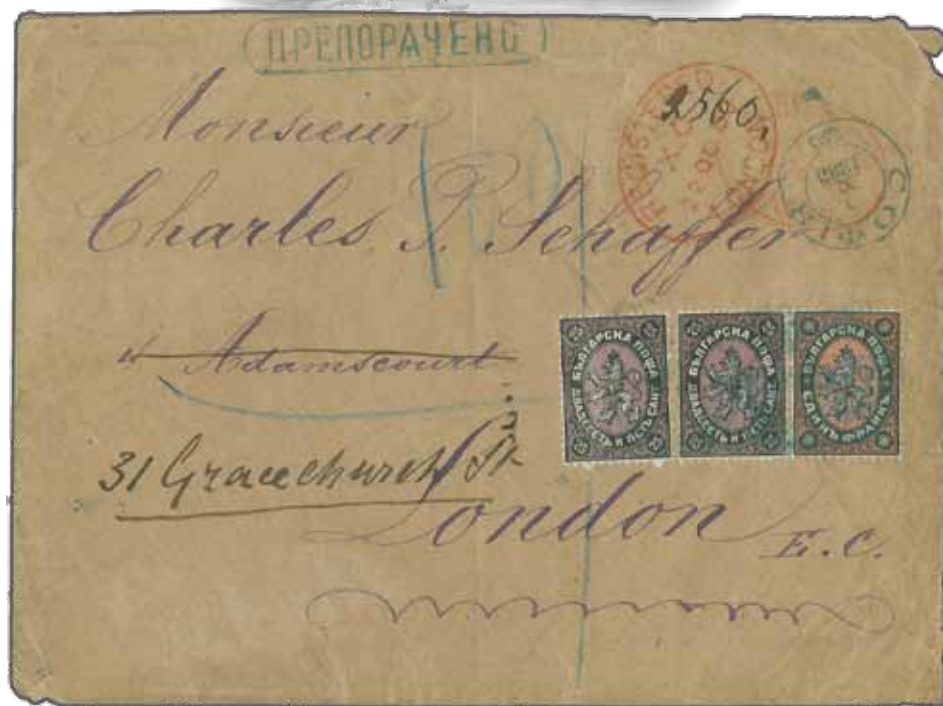 ПРЕПОРАЧЕНО
2560.
REGISTERED LONDON
Monsieur
Charles P. Schaffer
Adamscourt
31 Gracechurch St
London
E.C.
БЪЛГАРСКА ПОЩА
25 25
ДВАДЕСЕТЬ И ПЕТЬ САНТ.
БЪЛГАРСКА ПОЩА
25 25
ДВАДЕСЕТЬ И ПЕТЬ САНТ.
БЪЛГАРСКА ПОЩА
ЕДИНЪ ФРАНКЪ